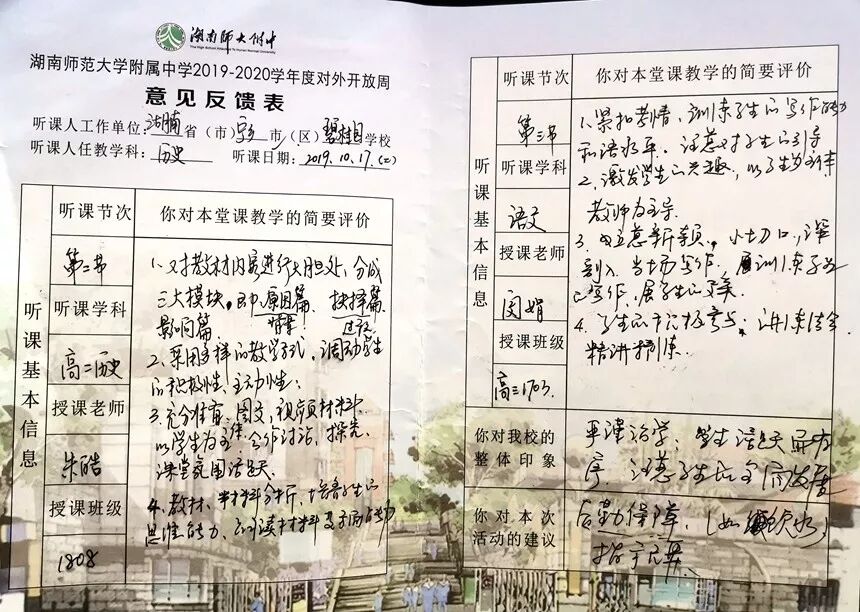 湖南师大附中
The High School Attached to Hunan Normal University
湖南师范大学附属中学2019-2020学年度对外开放周
意见反馈表
听课人工作单位: 湖南 省(市) 市/(区) 碧桂园 学校
听课人任教学科: 历史 听课日期: 2019.10.17.(三)
听课基本信息
听课节次
你对本堂课教学的简要评价
第二节
听课学科
高二历史
授课老师
朱皓
授课班级
1808
1、对教材内容进行大胆处, 分成
三大模块, 即原因篇、抉择篇、
背景 过程
影响篇
2、采用多样的教学形式, 调动学生
的积极性、主动性;
3、充分借有、图文, 视频材料
以学生为主体, 合作讨论, 探究,
课堂氛围活跃
4、教材、材料分析, 培养学生的
思维能力、阅读材料 能力
听课基本信息
听课节次
你对本堂课教学的简要评价
第三节
听课学科
语文
授课老师
闵娟
授课班级
高三1703.
1、紧扣考情, 训练学生的写作能力
和语水平. 注意对学生的引导
2、激发学生的兴趣, 以学生为主体
教师为主导.
3、立意新颖, 小切口, 深
剖入, 当场写作, 训练学生
写作, 展学生的
4、学生 积极参与; 讲练结合
精讲精练.
你对我校的
整体印象
严谨治学; 学生活跃而有
序, 注意学生的全面发展
你对本次
活动的建议
后勤保障, (如 饮水)
指示